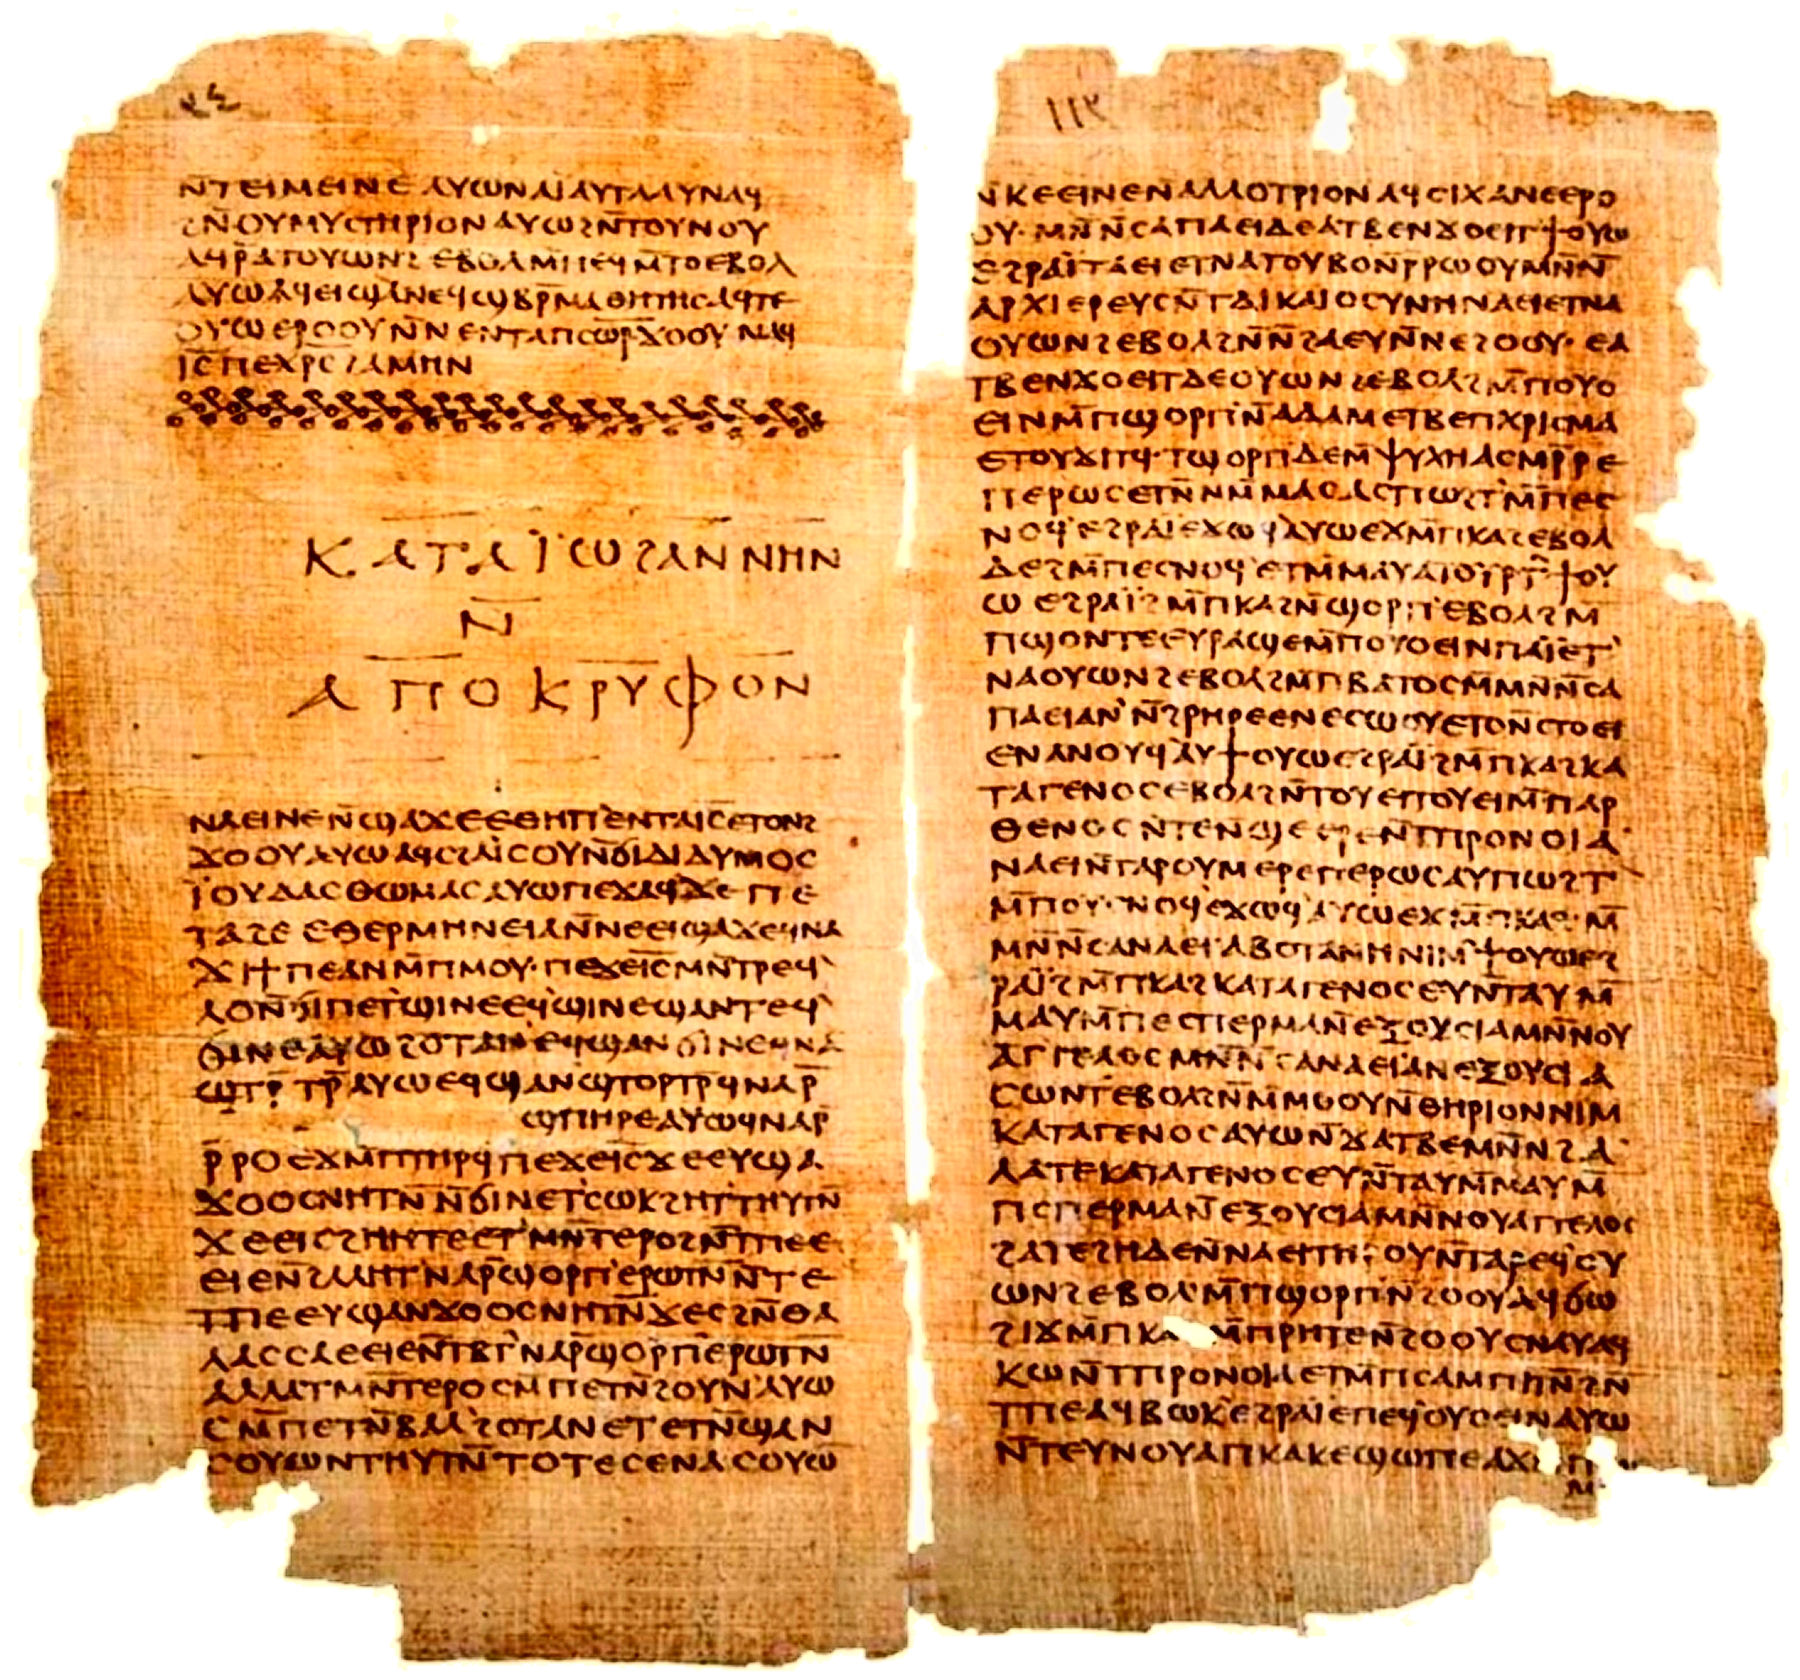 ⲛ̄ⲧⲉⲓⲙⲉⲓⲛⲉ ⲁⲩⲱ ⲛⲁⲓ̈ ⲁⲩⲧⲁⲁⲩ ⲛⲁϥ
ϩⲛ̄ ⲟⲩⲙⲩⲥⲧⲏⲣⲓⲟⲛ ⲁⲩⲱ ϩⲛ̄ ⲧⲟⲩⲛⲟⲩ
ⲁϥⲣ̄ⲁⲧⲟⲩⲱⲛϩ ⲉⲃⲟⲗ ⲙ̄ⲡⲉϥⲙ̄ⲧⲟ ⲉⲃⲟⲗ
ⲁⲩⲱ ⲁϥⲉⲓ ϣⲁ ⲛⲉϥϣⲃⲣ̄ⲙⲁⲑⲏⲧⲏⲥ ⲁϥⲧⲉ
ⲟⲩⲱ ⲉⲣⲟⲟⲩ ⲛ̄ⲛⲉⲛⲧⲁ ⲡⲥⲱⲣ̄ ϫⲟⲟⲩ ⲛⲁϥ
ⲓ̄ⲥ̄ ⲡⲉⲭ̄ⲣ̄ⲥ̄ ϩⲁⲙⲏⲛ
ⲕⲁⲧⲁ ⲓ̈ⲱϩⲁⲛⲛⲏⲛ
ⲛ̄
ⲁⲡⲟⲕⲣⲩⲫⲟⲛ
ⲛⲁⲉⲓ ⲛⲉ ⲛ̄ϣⲁϫⲉ ⲉⲑⲏⲡ' ⲉⲛⲧⲁ ⲓ̄ⲥ̄ ⲉⲧⲟⲛϩ
ϫⲟⲟⲩ ⲁⲩⲱ ⲁϥⲥϩⲁⲓ̈ⲥⲟⲩ ⲛ̄ϭⲓ ⲇⲓⲇⲩⲙⲟⲥ
ⲓ̈ⲟⲩⲇⲁⲥ ⲑⲱⲙⲁⲥ ⲁⲩⲱ ⲡⲉϫⲁϥ ϫⲉ ⲡⲉ
ⲧⲁϩⲉ ⲉⲑⲉⲣⲙⲏⲛⲉⲓⲁ ⲛ̄ⲛⲉⲉⲓϣⲁϫⲉ ϥⲛⲁ
ϫⲓ ϯⲡⲉ ⲁⲛ ⲙ̄ⲡⲙⲟⲩ· ⲡⲉϫⲉ ⲓ̄ⲥ̄ ⲙⲛ̄ⲧⲣⲉϥ'
ⲗⲟ ⲛ̄ϭⲓ ⲡⲉⲧ'ϣⲓⲛⲉ ⲉϥ'ϣⲓⲛⲉ ϣⲁⲛⲧⲉϥ'
ϭⲓⲛⲉ ⲁⲩⲱ ϩⲟⲧⲁⲛ' ⲉϥϣⲁⲛϭⲓⲛⲉ ϥⲛⲁ
ϣⲧⲣ̄ⲧⲣ̄ ⲁⲩⲱ ⲉϥϣⲁⲛϣⲧⲟⲣⲧⲣ̄ ϥⲛⲁⲣ̄
ϣⲡⲏⲣⲉ ⲁⲩⲱ ϥⲛⲁⲣ̄
ⲣ̄ⲣⲟ ⲉϫⲙ̄ ⲡⲧⲏⲣϥ ⲡⲉϫⲉ ⲓ̄ⲥ̄ ϫⲉ ⲉⲩϣⲁ
ϫⲟⲟⲥ ⲛⲏⲧⲛ̄ ⲛ̄ϭⲓ ⲛⲉⲧ'ⲥⲱⲕ ϩⲏⲧ' ⲧⲏⲩⲧⲛ̄
ϫⲉ ⲉⲓⲥϩⲏⲏⲧⲉ ⲉⲧ'ⲙⲛ̄ⲧⲉⲣⲟ ϩⲛ̄ ⲧⲡⲉ ⲉ
ⲉⲓⲉ ⲛ̄ϩⲁⲗⲏⲧ' ⲛⲁⲣ̄ ϣⲟⲣⲡ' ⲉⲣⲱⲧⲛ̄ ⲛ̄ⲧⲉ
ⲧⲡⲉ ⲉⲩϣⲁⲛϫⲟⲟⲥ ⲛⲏⲧⲛ̄ ϫⲉ ⲥϩⲛ̄ ⲑⲁ
ⲗⲁⲥⲥⲁ ⲉⲉⲓⲉ ⲛ̄ⲧⲃⲧ' ⲛⲁⲣ̄ ϣⲟⲣⲡ' ⲉⲣⲱⲧⲛ̄
ⲁⲗⲗⲁ ⲧⲙⲛ̄ⲧⲉⲣⲟ ⲥⲙ̄ⲡⲉⲧⲛ̄ϩⲟⲩⲛ' ⲁⲩⲱ
ⲥⲙ̄ⲡⲉⲧⲛ̄ⲃⲁⲗ' ϩⲟⲧⲁⲛ ⲉⲧⲉⲧⲛ̄ϣⲁⲛ
ⲥⲟⲩⲱⲛ ⲧⲏⲩⲧⲛ̄ ⲧⲟⲧⲉ ⲥⲉⲛⲁⲥⲟⲩⲱ
ⲛ̄ⲕⲉⲉⲓⲛⲉ ⲛ̄ⲁⲗⲗⲟⲧⲣⲓⲟⲛ ⲁϥⲥⲓⲭⲁⲛⲉ ⲉⲣⲟ
ⲟⲩ· ⲙⲛ̄ⲛ̄ⲥⲁ ⲡⲁⲉⲓ ⲇⲉ ⲁⲧⲃⲉⲛϫⲟⲉⲓⲧ' ϯⲟⲩⲱ
ⲉϩⲣⲁⲓ̈ ⲧⲁⲉⲓ ⲉⲧⲛⲁⲧⲟⲩⲃⲟ ⲛ̄ⲣ̄ⲣⲱⲟⲩ ⲙⲛ̄ ⲛ̄
ⲁⲣⲭⲓⲉⲣⲉⲩⲥ ⲛ̄ⲧⲇⲓⲕⲁⲓⲟⲥⲩⲛⲏ ⲛⲁⲉⲓ ⲉⲧⲛⲁ
ⲟⲩⲱⲛϩ ⲉⲃⲟⲗ ϩⲛ̄ ⲛ̄ϩⲁⲉⲩ ⲛ̄ⲛⲉϩⲟⲟⲩ· ⲉⲁ
ⲧⲃⲉⲛϫⲟⲉⲓⲧ ⲇⲉ ⲟⲩⲱⲛϩ ⲉⲃⲟⲗ ϩⲙ̄ ⲡⲟⲩⲟ
ⲉⲓⲛ ⲙ̄ⲡϣⲟⲣⲡ' ⲛ̄ⲁⲇⲁⲙ ⲉⲧⲃⲉ ⲡⲭⲣⲓⲥⲙⲁ
ⲉⲧⲟⲩϫⲓⲧϥ· ⲧϣⲟⲣⲡ ⲇⲉ ⲙ̄ⲯⲩⲭⲏ ⲁⲥⲙ̄ⲣ̄ⲣⲉ
ⲡⲉⲣⲱⲥ ⲉⲧⲛ̄ⲛⲙ̄ⲙⲁⲥ ⲁⲥⲡⲱϩⲧ' ⲙ̄ⲡⲉⲥ
ⲛⲟϥ' ⲉϩⲣⲁⲓ̈ ⲉϫⲱϥ ⲁⲩⲱ ⲉϫⲙ̄ ⲡⲕⲁϩ ⲉⲃⲟⲗ
ⲇⲉ ϩⲙ̄ ⲡⲉⲥⲛⲟϥ' ⲉⲧⲙ̄ⲙⲁⲩ ⲁⲡⲟⲩⲣⲧ' ϯⲟⲩ
ⲱ ⲉϩⲣⲁⲓ̈ ϩⲙ̄ ⲡⲕⲁϩ ⲛ̄ϣⲟⲣⲡ' ⲉⲃⲟⲗ ϩⲙ̄
ⲡϣⲟⲛⲧⲉ ⲉⲩⲣⲁϣⲉ ⲙ̄ⲡⲟⲩⲟⲉⲓⲛ ⲡⲁⲓ̈ ⲉⲧ'
ⲛⲁⲟⲩⲱⲛϩ ⲉⲃⲟⲗ ϩⲙ̄ ⲡⲃⲁⲧⲟⲥ ⲙ̄ⲙⲛ̄ⲛ̄ⲥⲁ
ⲡⲁⲉⲓ ⲁⲛ' ⲛ̄ϩⲣⲏⲣⲉ ⲉⲛⲉⲥⲱⲟⲩ ⲉⲧⲟ ⲛ̄ⲥⲧⲟⲉⲓ
ⲉⲛⲁⲛⲟⲩϥ' ⲁⲩϯⲟⲩⲱ ⲉϩⲣⲁⲓ̈ ϩⲙ̄ ⲡⲕⲁϩ ⲕⲁ
ⲧⲁ ⲅⲉⲛⲟⲥ ⲉⲃⲟⲗ ϩⲛ̄ ⲧⲟⲩⲉⲓ ⲧⲟⲩⲉⲓ ⲙ̄ⲡⲁⲣ
ⲑⲉⲛⲟⲥ ⲛ̄ⲧⲉ ⲛ̄ϣⲉⲉⲣⲉ ⲛ̄ⲧⲡⲣⲟⲛⲟⲓⲁ
ⲛⲁⲉⲓ ⲛ̄ⲧⲁⲣⲟⲩⲙⲉⲣⲉ ⲡⲉⲣⲱⲥ ⲁⲩⲡⲱϩⲧ'
ⲙ̄ⲡⲟⲩⲥⲛⲟϥ' ⲉϫⲱϥ' ⲁⲩⲱ ⲉϫⲙ̄ ⲡⲕⲁϩ· ⲙ̄
ⲙⲛ̄ⲛ̄ⲥⲁ ⲛⲁⲉⲓ ⲁⲃⲟⲧⲁⲛⲏ ⲛⲓⲙ' ϯⲟⲩⲱ ⲉϩ
ⲣⲁⲓ̈ ϩⲙ̄ ⲡⲕⲁϩ ⲕⲁⲧⲁ ⲅⲉⲛⲟⲥ ⲉⲩⲛ̄ⲧⲁⲩ ⲙ̄
ⲙⲁⲩ ⲙ̄ⲡⲉⲥⲡⲉⲣⲙⲁ ⲛ̄ⲉⲝⲟⲩⲥⲓⲁ ⲙⲛ̄ ⲛⲟⲩ
ⲁⲅⲅⲉⲗⲟⲥ ⲙⲛ̄ⲛ̄ⲥⲁ ⲛⲁⲉⲓ ⲁⲛⲉⲝⲟⲩⲥⲓⲁ
ⲥⲱⲛⲧ' ⲉⲃⲟⲗ ϩⲛ̄ ⲙ̄ⲙⲟⲟⲩ ⲛ̄ⲑⲏⲣⲓⲟⲛ ⲛⲓⲙ
ⲕⲁⲧⲁ ⲅⲉⲛⲟⲥ ⲁⲩⲱ ⲛ̄ϫⲁⲧⲃⲉ ⲙⲛ̄ ⲛ̄ϩⲁ
ⲗⲁⲧⲉ ⲕⲁⲧⲁ ⲅⲉⲛⲟⲥ ⲉⲩⲛ̄ⲧⲁⲩ ⲙ̄ⲙⲁⲩ ⲙ̄
ⲡⲥⲡⲉⲣⲙⲁ ⲛ̄ⲉⲝⲟⲩⲥⲓⲁ ⲙⲛ̄ ⲛⲟⲩⲁⲅⲅⲉⲗⲟⲥ
ϩⲁⲧⲉϩⲏ ⲇⲉ ⲛ̄ⲛⲁⲉⲓ ⲧⲏⲣⲟⲩ ⲛ̄ⲧⲁⲣⲉϥ'ⲟⲩ
ⲱⲛϩ ⲉⲃⲟⲗ ⲙ̄ⲡϣⲟⲣⲡ' ⲛ̄ϩⲟⲟⲩ ⲁϥϭⲱ
ϩⲓϫⲙ̄ ⲡⲕⲁ ⲙ̄ⲡⲣⲏⲧⲉ ⲛ̄ϩⲟⲟⲩ ⲥⲛⲁⲩ ⲁϥ
ⲕⲱ ⲛ̄ⲧⲡⲣⲟⲛⲟⲓⲁ ⲉⲧⲙ̄ⲡⲥⲁ ⲙⲡⲓⲧⲛ̄ ϩⲛ̄
ⲧⲡⲉ ⲁϥⲃⲱⲕ' ⲉϩⲣⲁⲓ̈ ⲉⲡⲉϥ'ⲟⲩⲟⲉⲓⲛ ⲁⲩⲱ
ⲛ̄ⲧⲉⲩⲛⲟⲩ ⲁⲡⲕⲁⲕⲉ ϣⲱⲡⲉ